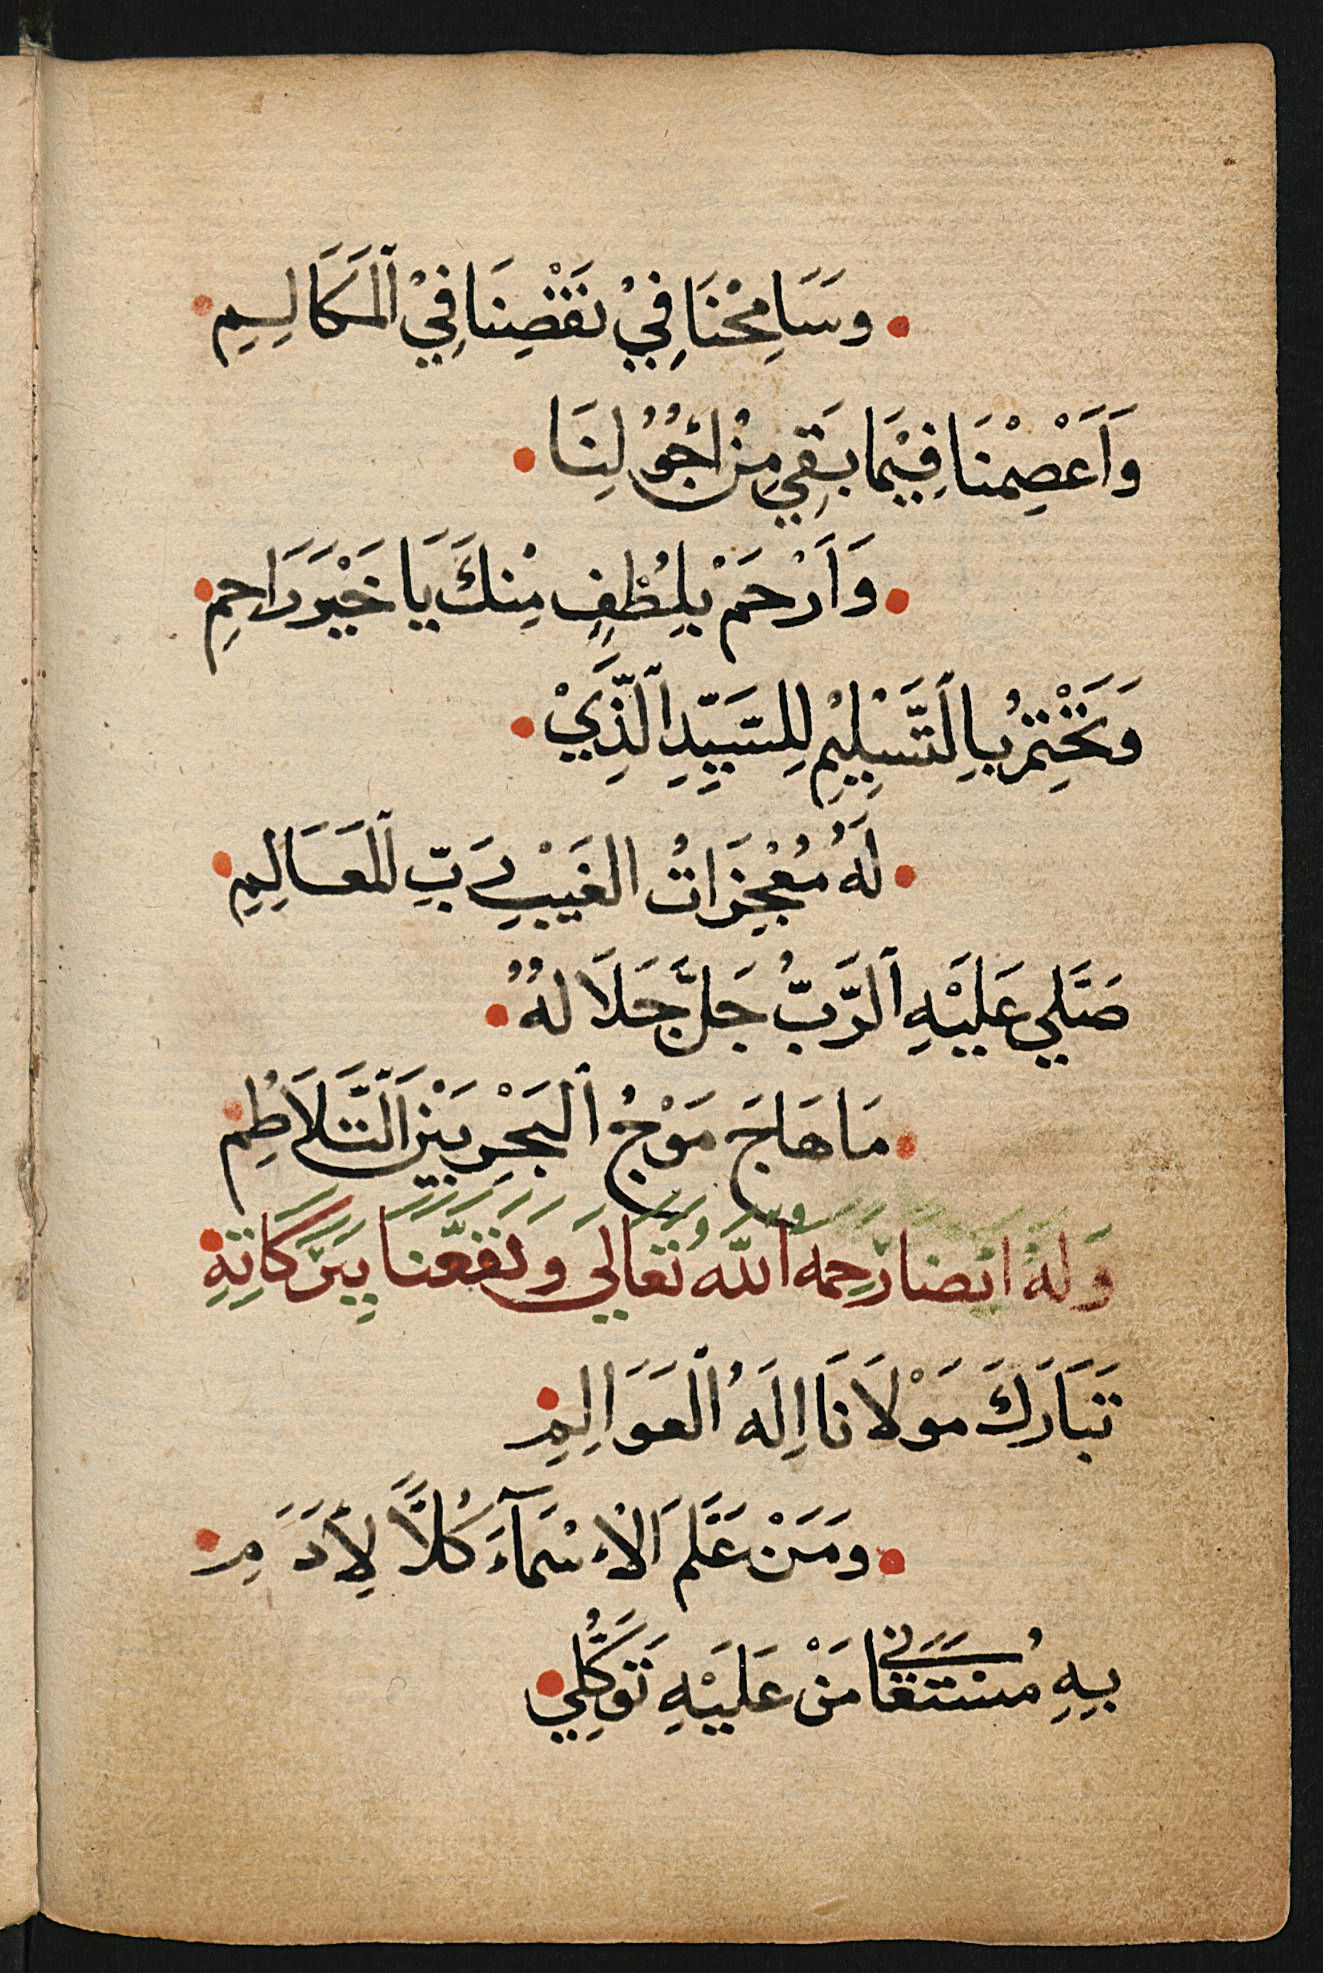 وَسَامِحْنَا فِيْ نَقْصِنَا فِيْ ٱلْمَكَالِيمِ
وَاَعْصِمْنَا فِيْمَا بَقِي مِنْ اُجُوْلِنَا
وَاَرْحَمْ بِلُطْفٍ مِنْكَ يَا خَيْرَ رَاحِمِ
وَنَخْتِمْ بِالتَّسْلِيْمِ لِلسَّيِّدِ ٱلَّذِيْ
لَهُ مُعْجِزَاتُ الغَيْبِ رَبِّ ٱلْمَعَالِمِ
صَلَّي عَلَيْهِ ٱلرَّبُّ جَلَّ جَلَالُهُ
مَا هَاجَ مَوْجُ ٱلبَحْرِ بَيْنَ اَلتَّلَاطُمِ
وَلَهُ اَيْضَا رَحِمَهُ اللَّهُ تَعَالَي وَنَفَعَّنَا بِبَرَكَاتِهِ
تَبَارَكَ مَوْلَانَا اِلَهُ ٱلْعَوَالِمِ
وَمَنْ عَلَّمَ اَلْاَسْمَآءَ كُلاًّ لِأَدَمِ
بِهِ مُسْتَغَانِي مَنْ عَلَيْهِ تَوَكُّلِي